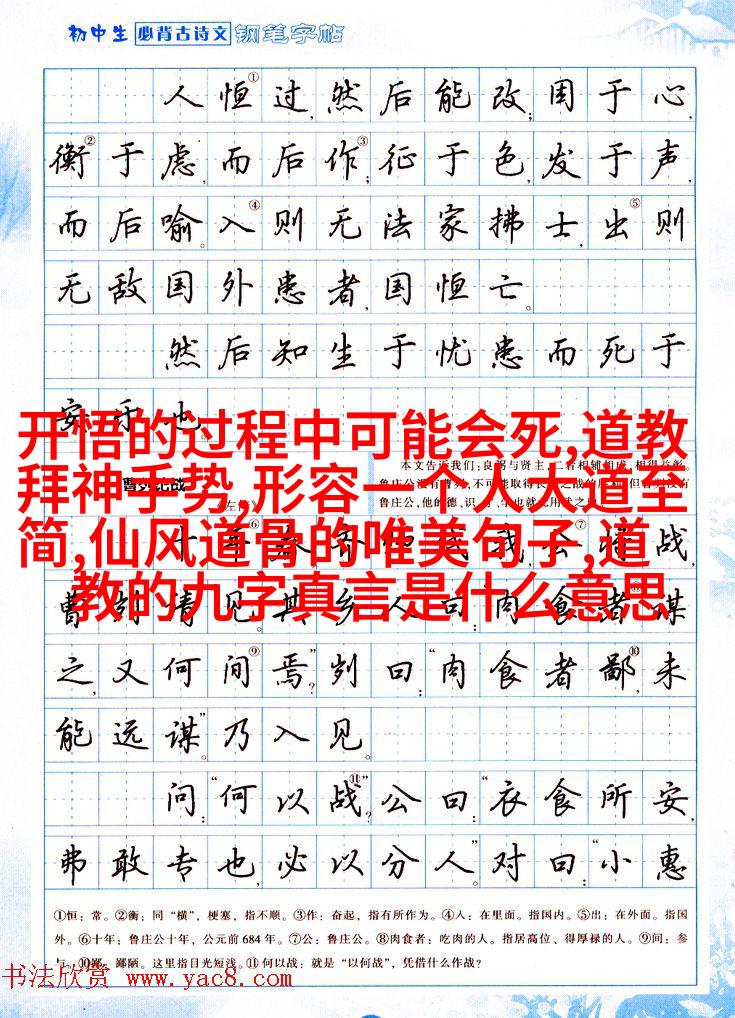 初中生 必背古诗文 钢笔字帖
人恒①过,然后能改;困于心,
衡②于虑,而后作③;征于色,发于声,
而后喻。入④则无法家拂士,出⑤则
无敌国外患者,国恒亡。
然后知生于忧患而死于
安乐也。
开悟的过程中可能会死,道教
拜神手势,形容一个人大道至
简,仙风道骨的唯美句子,道
教的九字真言是什么意思
曹刿论战
《左传》
本文告诉我们:良将与贤主,二者相辅相成,相得益彰。
鲁庄公没有曹刿,不可能取得长勺之战
鲁庄公,他的德、识
十年⑥春,齐师伐我,公⑦将战,
曹刿请见。其乡人曰:“肉食者谋
之,又何间⑨焉?”刿曰:“肉食者鄙⑩,未
能远谋。”乃入见。
问:“何以战⑪?”公曰:“衣食所安,
弗敢专也,必以分人。”对曰:“小惠
①恒:常。②衡:同“横”,梗塞,指不顺。③作:奋起,指有所作为。④入:在里面。指国内。⑤出:在外面。指国
外。⑥十年:鲁庄公十年,公元前684年。⑦公:鲁庄公。⑧肉食者:吃肉的人。指居高位、得厚禄的人。⑨间:参
与。⑩鄙:鄙陋。这里指目光短浅。⑪何以战:就是“以何战”,凭借什么作战?
书法欣赏 www.yac8.com